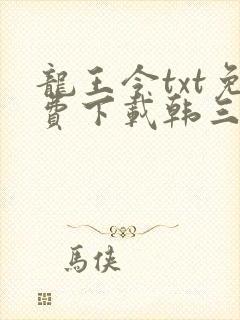 龍王令txt免
費下載韩三
馬俠